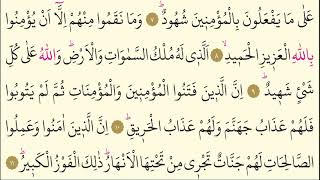 عَلٰى مَا يَفْعَلُونَ بِالْمُؤْمِن۪ينَ شُهُودٌۜ ﴿٧﴾ وَمَا نَقَمُوا مِنْهُمْ اِلَّٓا اَنْ يُؤْمِنُوا
بِاللّٰهِ الْعَز۪يزِ الْحَم۪يدِۙ ﴿٨﴾ اَلَّذ۪ي لَهُ مُلْكُ السَّمٰوَاتِ وَالْاَرْضِۜ وَاللّٰهُ عَلٰى كُلِّ
شَيْءٍ شَه۪يدٌۜ ﴿٩﴾ اِنَّ الَّذ۪ينَ فَتَنُوا الْمُؤْمِن۪ينَ وَالْمُؤْمِنَاتِ ثُمَّ لَمْ يَتُوبُوا
فَلَهُمْ عَذَابُ جَهَنَّمَ وَلَهُمْ عَذَابُ الْحَر۪يقِۜ ﴿١٠﴾ اِنَّ الَّذ۪ينَ اٰمَنُوا وَعَمِلُوا
الصَّالِحَاتِ لَهُمْ جَنَّاتٌ تَجْر۪ي مِنْ تَحْتِهَا الْاَنْهَارُۜ ذٰلِكَ الْفَوْزُ الْكَب۪يرُۜ ﴿١١﴾